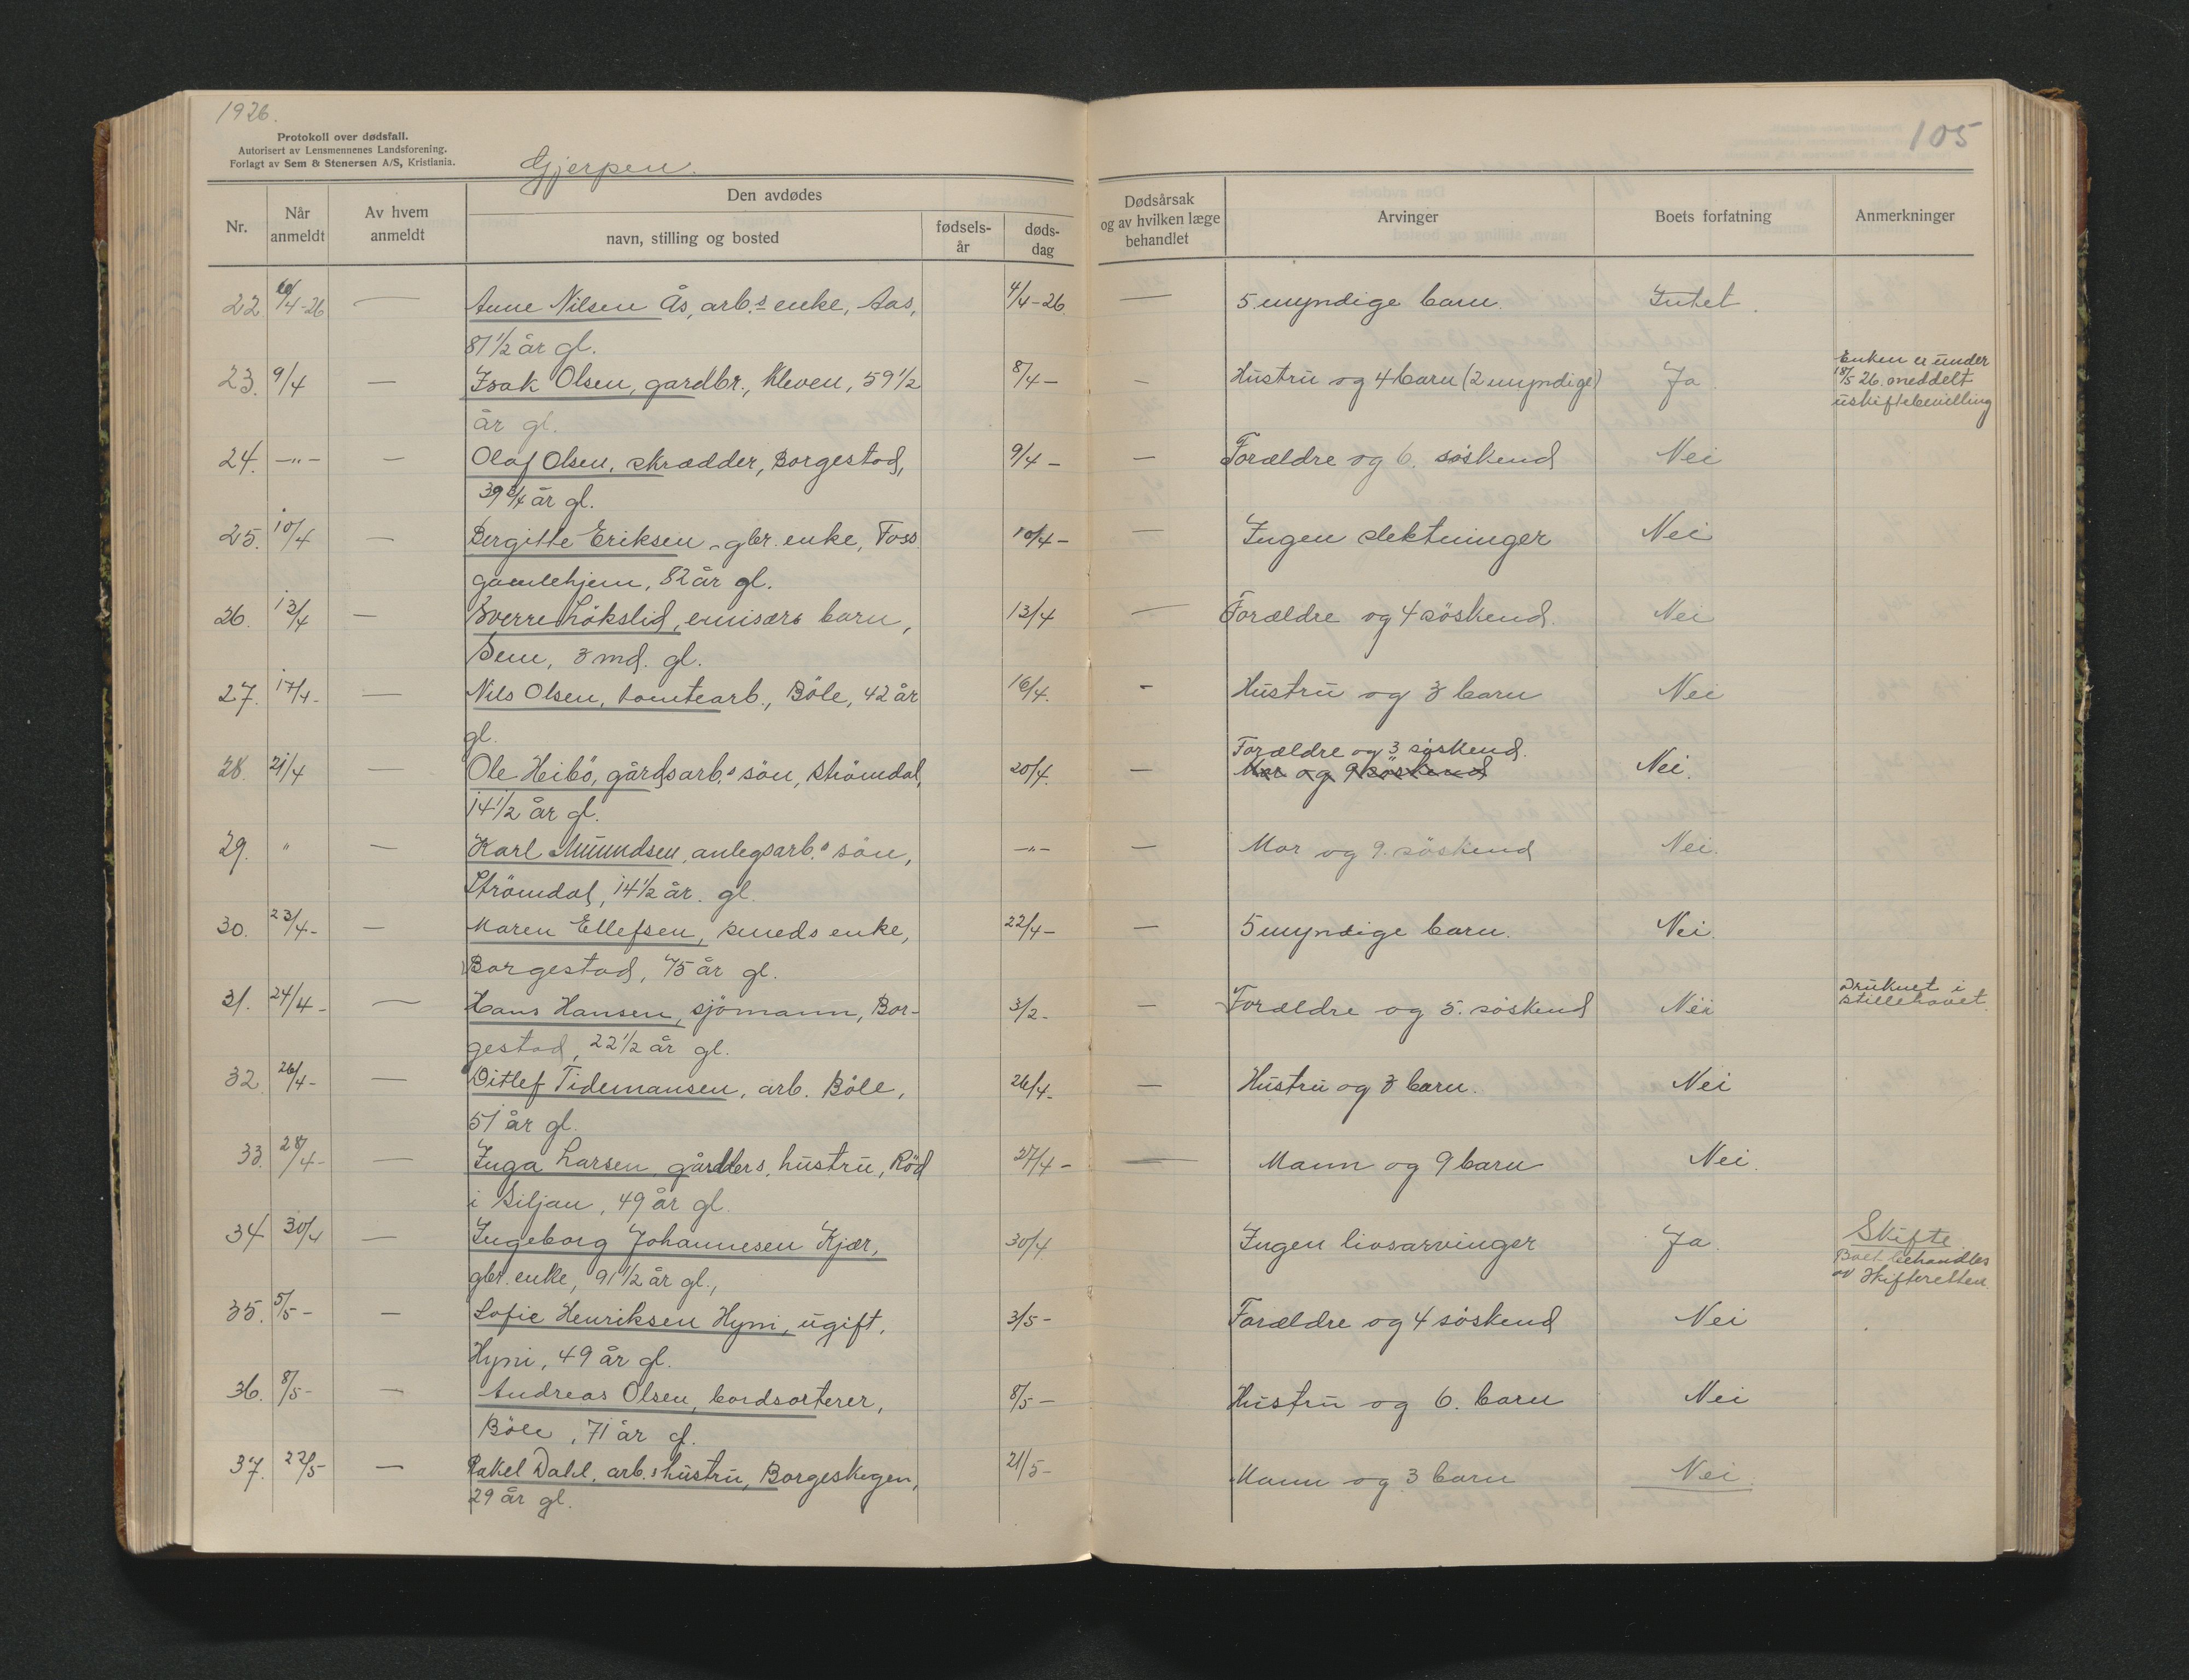 1926.
105
Protokoll over dødsfall.
Autorisert av Lensmennenes Landsforening.
Forlagt av Sem & Stenersen A/S, Kristiania.
Gjerpen.
Nr. | Når anmeldt | Av hvem anmeldt | Den avdødes navn, stilling og bosted | fødsels-år | døds-dag | Dødsårsak og av hvilken læge behandlet | Arvinger | Boets forfatning | Anmerkninger
22. 6/4-26 — Anne Nilsen Ås, arb.s enke, Aas, 4/4-26. — 5 myndige barn. Intet.
81 1/2 år gl.
23. 9/4 — Isak Olsen, gardbr., Kleven, 59 1/2 8/4 — — Hustru og 4 barn (2 myndige) Ja. Enken er under
18/5 26. meddelt
uskiftebevilling
år gl.
24. —"— — Olaf Olsen, skrædder, Borgestad, 9/4 — — Forældre og 6. søskend Nei
39 3/4 år gl.
25. 10/4 — Bergitte Eriksen, gbr. enke, Foss 10/4 — — Ingen slektninger Nei
gamlehjem, 82 år gl.
26. 13/4 — Sverre Lökslid, emisærs barn, 13/4 — Forældre og 4 söskend. Nei
Sem, 3 md. gl.
27. 17/4- — Nils Olsen, tomtearb., Böle, 42 år 16/4. - Hustru og 3 barn Nei
gl.
Forældre og 3 söskend.
28. 21/4 — Ole Heibö, gårdsarb.s sön, Strömdal, 20/4. — Mor og 9 söskend Nei.
14 1/2 år gl.
29. " — Karl Amundsen, anlegsarb.s sön, —"— — Mor og 9. söskend Nei.
Strömdal, 14 1/2 år. gl.
30. 23/4- — Maren Ellefsen, smeds enke, 22/4- — 5 myndige barn. Nei.
Borgestad, 75 år gl.
31. 24/4- — Hans Hansen, sjömann, Bor- 3/2- — Forældre og 5. söskend Nei Druknet i
Stillehavet.
gestad, 22 1/2 år gl.
32. 26/4- — Ditlef Tidemansen, arb. Böle, 26/4- — Hustru og 3 barn. Nei
51 år gl.
33. 28/4- — Inga Larsen, gårdbrs. hustru, Röd 27/4- — Mann og 9 barn Nei.
i Siljan, 49 år gl.
34 30/4 — Ingeborg Johannesen Kjær, 30/4 Ingen livsarvinger Ja. Skifte
Boet behandles
av Skifteretten.
gbr. enke, 91 1/2 år gl.,
35. 5/5- — Sofie Henriksen Hyni, ugift, 3/5- Forældre og 4 söskend Nei
Hyni, 49 år gl.
36. 8/5- — Andreas Olsen, bordsorterer, 8/5- Hustru og 6. barn Nei
Böle, 71 år gl.
37. 22/5- — Rakel Dahl, arb.s hustru, Borgeskogen, 21/5- Mann og 3 barn Nei.
29 år gl.